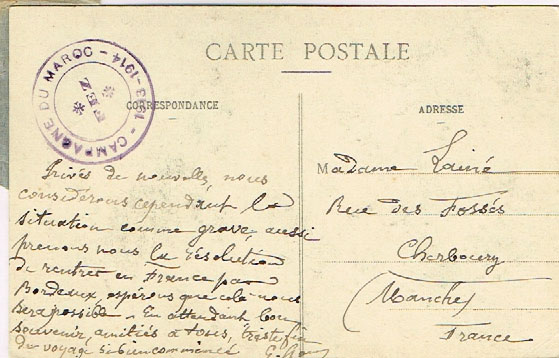 CARTE POSTALE
CAMPAGNE DU MAROC - 1913-1914 -
FEZ
CORRESPONDANCE
Privés de nouvelles, nous
considérons cependant la
situation comme grave, aussi
prenons nous la résolution
de rentrer en France par
Bordeaux, espérons que cela nous
sera possible - En attendant bon
souvenir, amitiés à tous, triste fin
du voyage si bien commencé
ADRESSE
Madame Lainé
Rue des Fossés
Cherbourg
(Manche)
France